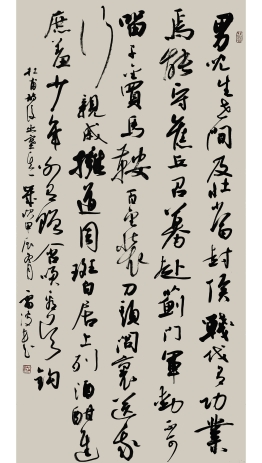 男兒生世間及壯當封侯戰伐有功業
焉能守舊丘召募赴薊门軍動不可
留千金買馬鞍百金裝刀頭閭裏送我
行親戚擁道周斑白居上列酒酣進
庶羞少年別有贈含笑看吳鉤
杜甫後出塞其一 甲辰